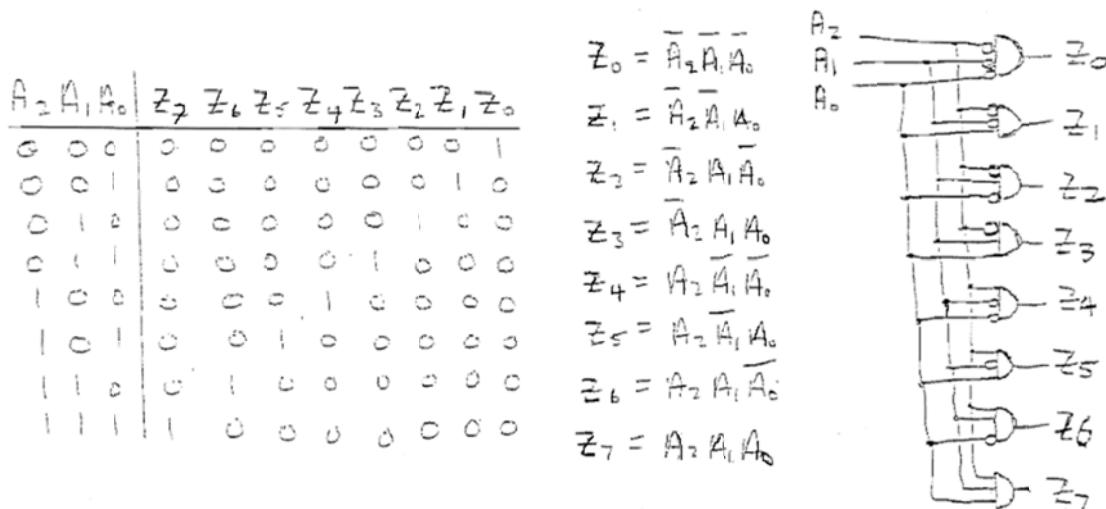 A₂ A₁ A₀ Z₇ Z₆ Z₅ Z₄ Z₃ Z₂ Z₁ Z₀
0 0 0 0 0 0 0 0 0 0 1
0 0 1 0 0 0 0 0 0 1 0
0 1 0 0 0 0 0 0 1 0 0
0 1 1 0 0 0 0 1 0 0 0
1 0 0 0 0 0 1 0 0 0 0
1 0 1 0 0 1 0 0 0 0 0
1 1 0 0 1 0 0 0 0 0 0
1 1 1 1 0 0 0 0 0 0 0
Z₀ = A̅₂ A̅₁ A̅₀
Z₁ = A̅₂ A̅₁ A₀
Z₂ = A̅₂ A₁ A̅₀
Z₃ = A̅₂ A₁ A₀
Z₄ = A₂ A̅₁ A̅₀
Z₅ = A₂ A̅₁ A₀
Z₆ = A₂ A₁ A̅₀
Z₇ = A₂ A₁ A₀
A₂
A₁
A₀
Z₀
Z₁
Z₂
Z₃
Z₄
Z₅
Z₆
Z₇